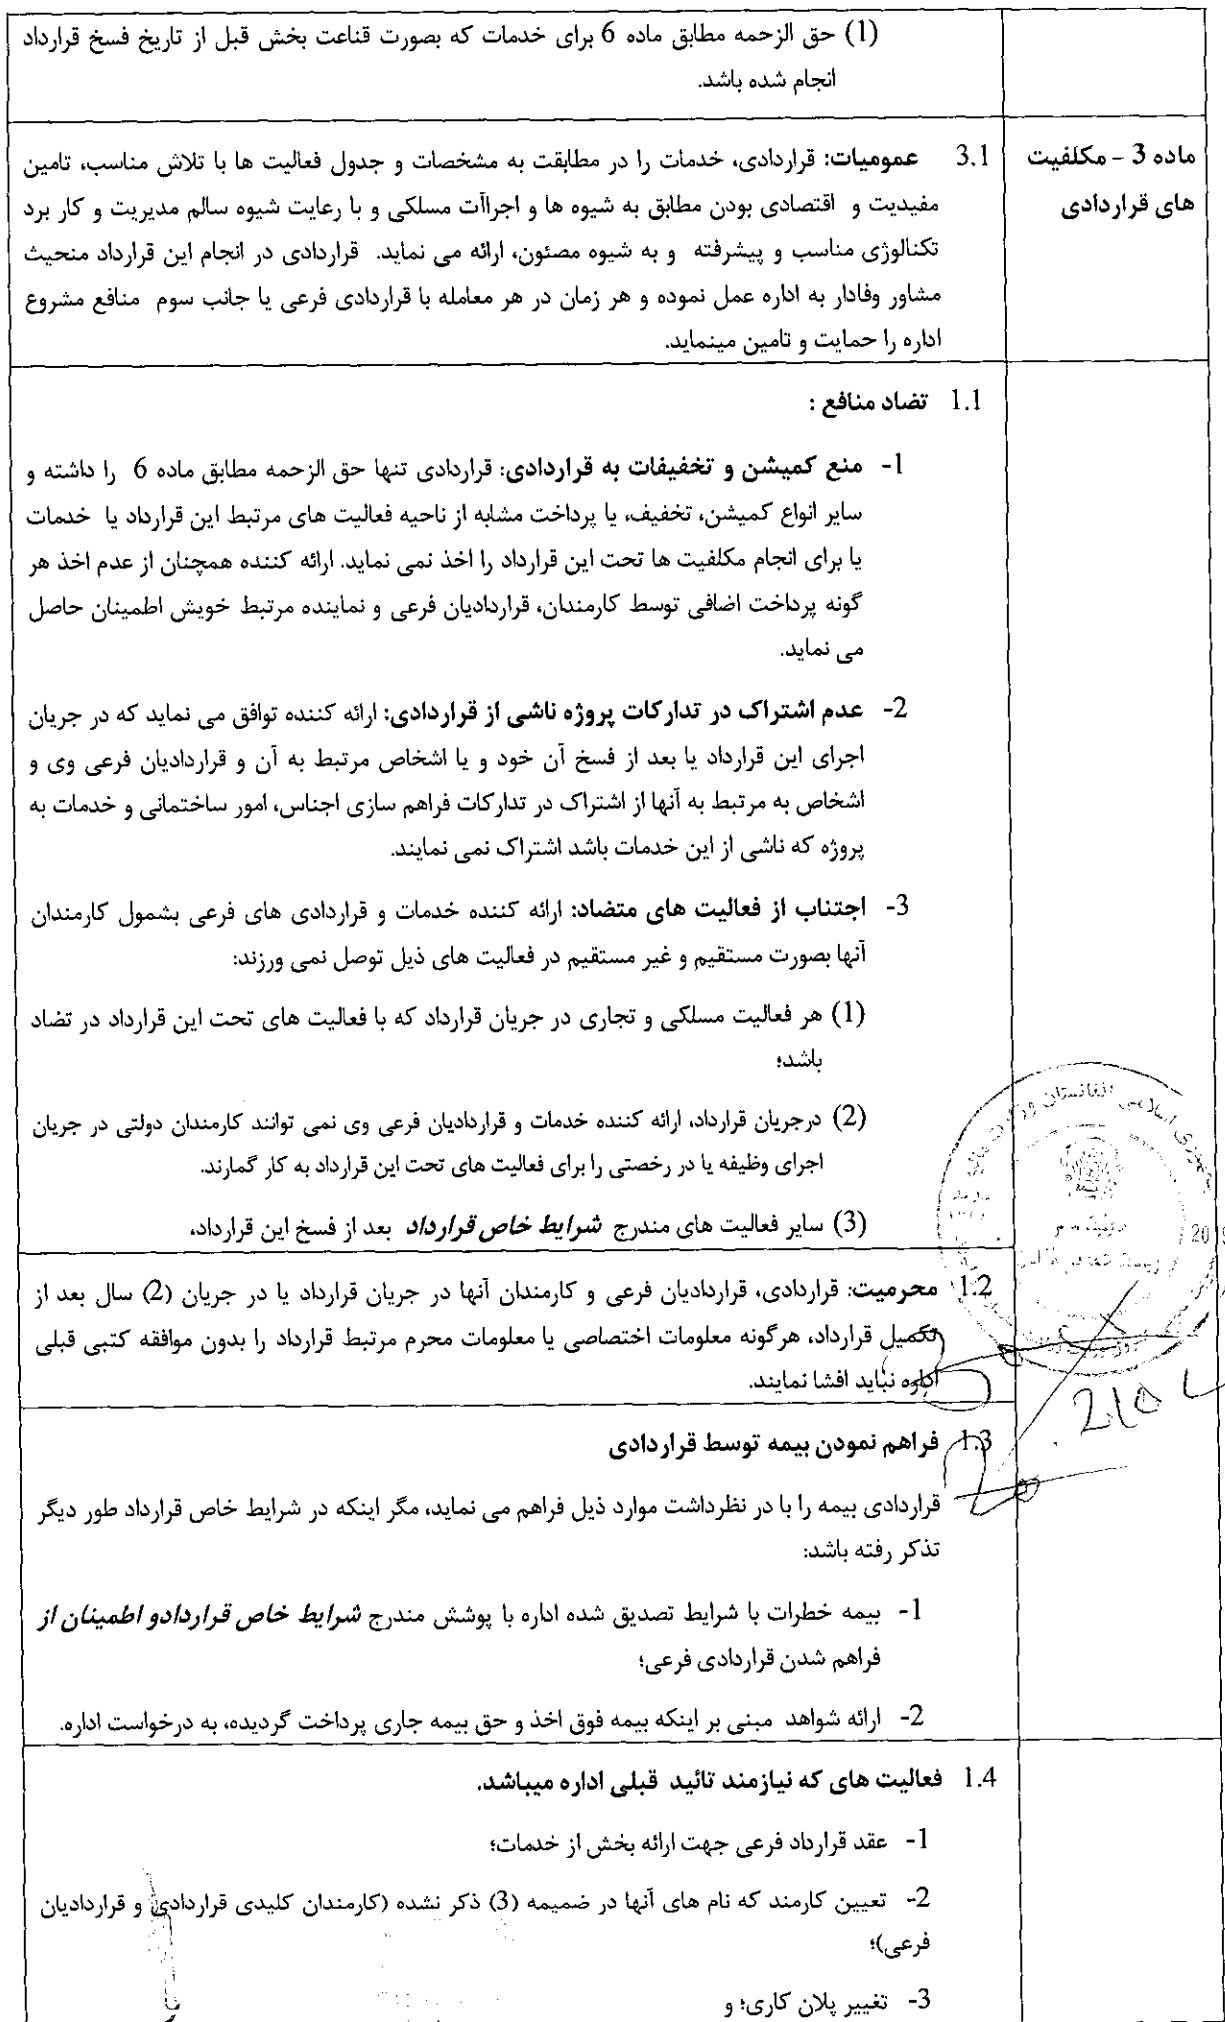 (1) حق الزحمه مطابق ماده 6 برای خدمات که بصورت قناعت بخش قبل از تاریخ فسخ قرارداد
انجام شده باشد.
ماده 3 - مکلفیت
های قراردادی
3.1 عمومیات: قراردادی، خدمات را در مطابقت به مشخصات و جدول فعالیت ها با تلاش مناسب، تامین
مفیدیت و اقتصادی بودن مطابق به شیوه ها و اجراآت مسلکی و با رعایت شیوه سالم مدیریت و کار برد
تکنالوژی مناسب و پیشرفته و به شیوه مصئون، ارائه می نماید. قراردادی در انجام این قرارداد منحیث
مشاور وفادار به اداره عمل نموده و هر زمان در هر معامله با قراردادی فرعی یا جانب سوم منافع مشروع
اداره را حمایت و تامین مینماید.
1.1 تضاد منافع :
1- منع کمیشن و تخفیفات به قراردادی: قراردادی تنها حق الزحمه مطابق ماده 6 را داشته و
سایر انواع کمیشن، تخفیف، یا پرداخت مشابه از ناحیه فعالیت های مرتبط این قرارداد یا خدمات
یا برای انجام مکلفیت ها تحت این قرارداد را اخذ نمی نماید. ارائه کننده همچنان از عدم اخذ هر
گونه پرداخت اضافی توسط کارمندان، قراردادیان فرعی و نماینده مرتبط خویش اطمینان حاصل
می نماید.
2- عدم اشتراک در تدارکات پروژه ناشی از قراردادی: ارائه کننده توافق می نماید که در جریان
اجرای این قرارداد یا بعد از فسخ آن خود و یا اشخاص مرتبط به آن و قراردادیان فرعی وی و
اشخاص به مرتبط به آنها از اشتراک در تدارکات فراهم سازی اجناس، امور ساختمانی و خدمات به
پروژه که ناشی از این خدمات باشد اشتراک نمی نمایند.
3- اجتناب از فعالیت های متضاد: ارائه کننده خدمات و قراردادی های فرعی بشمول کارمندان
آنها بصورت مستقیم و غیر مستقیم در فعالیت های ذیل توصل نمی ورزند:
(1) هر فعالیت مسلکی و تجاری در جریان قرارداد که با فعالیت های تحت این قرارداد در تضاد
باشد؛
(2) درجریان قرارداد، ارائه کننده خدمات و قراردادیان فرعی وی نمی توانند کارمندان دولتی در جریان
اجرای وظیفه یا در رخصتی را برای فعالیت های تحت این قرارداد به کار گمارند.
(3) سایر فعالیت های مندرج شرایط خاص قرارداد بعد از فسخ این قرارداد،
1.2 محرمیت: قراردادی، قراردادیان فرعی و کارمندان آنها در جریان قرارداد یا در جریان (2) سال بعد از
تکمیل قرارداد، هرگونه معلومات اختصاصی یا معلومات محرم مرتبط قرارداد را بدون موافقه کتبی قبلی
اداره نباید افشا نمایند.
1.3 فراهم نمودن بیمه توسط قراردادی
قراردادی بیمه را با در نظرداشت موارد ذیل فراهم می نماید، مگر اینکه در شرایط خاص قرارداد طور دیگر
تذکر رفته باشد:
1- بیمه خطرات با شرایط تصدیق شده اداره با پوشش مندرج شرایط خاص قراردادو اطمینان از
فراهم شدن قراردادی فرعی؛
2- ارائه شواهد مبنی بر اینکه بیمه فوق اخذ و حق بیمه جاری پرداخت گردیده، به درخواست اداره.
1.4 فعالیت های که نیازمند تائید قبلی اداره میباشد.
1- عقد قرارداد فرعی جهت ارائه بخش از خدمات؛
2- تعیین کارمند که نام های آنها در ضمیمه (3) ذکر نشده (کارمندان کلیدی قراردادی و قراردادیان
فرعی)؛
3- تغییر پلان کاری؛ و